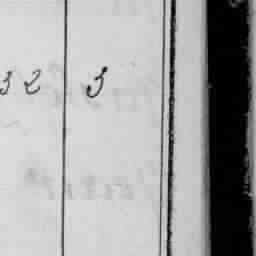 32 3